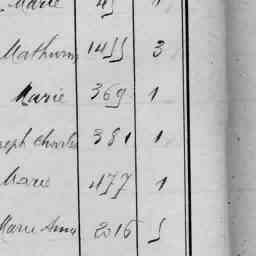 Marie 45 1
Mathurin 1455 3
Marie 369 1
seph Charles 381 1
Marie 477 1
Marie Anne 2016 5